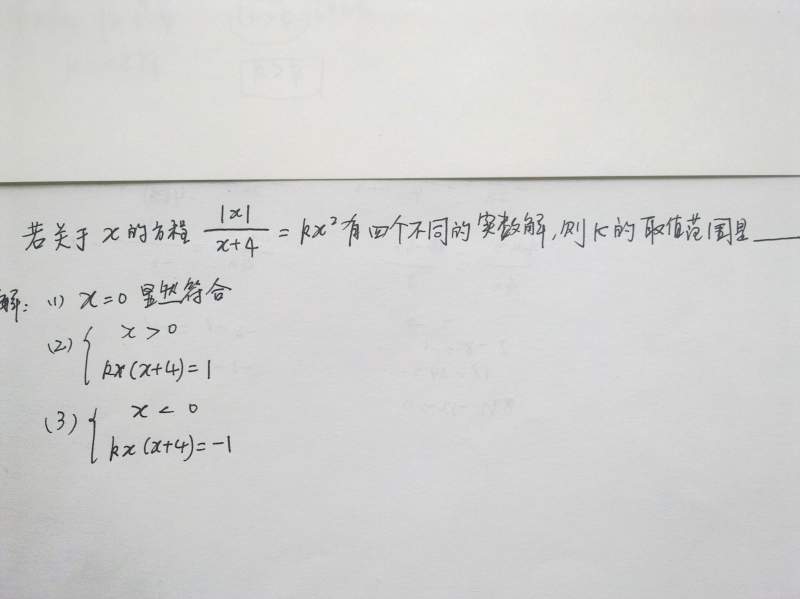 若关于x的方程 |x|/(x+4) = kx²有四个不同的实数解,则K的取值范围是____
解: (1) x=0 显然符合
(2) { x>0
kx(x+4)=1
(3) { x<0
kx(x+4)=-1